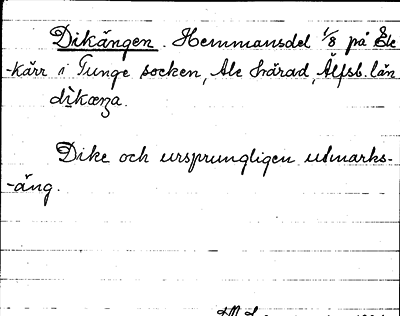 Dikängen. Hemmansdel 1/8 på Ale
-kärr i Tunge socken, Ale härad, Älfsb. län
dikæŋa.
Dike och ursprungligen utmarks-
-äng.